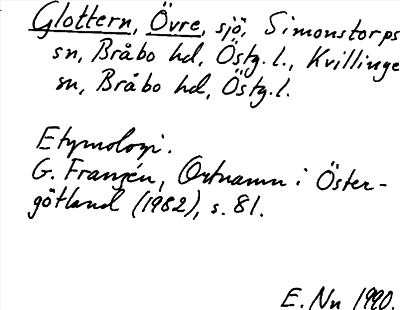 Glottern, Övre, sjö, Simonstorps
sn, Bråbo hd, Östg.l., Kvillinge
sn, Bråbo hd, Östg.l.
Etymologi.
G. Franzén, Ortnamn i Öster-
götland (1982), s. 81.
E. Nn 1990.